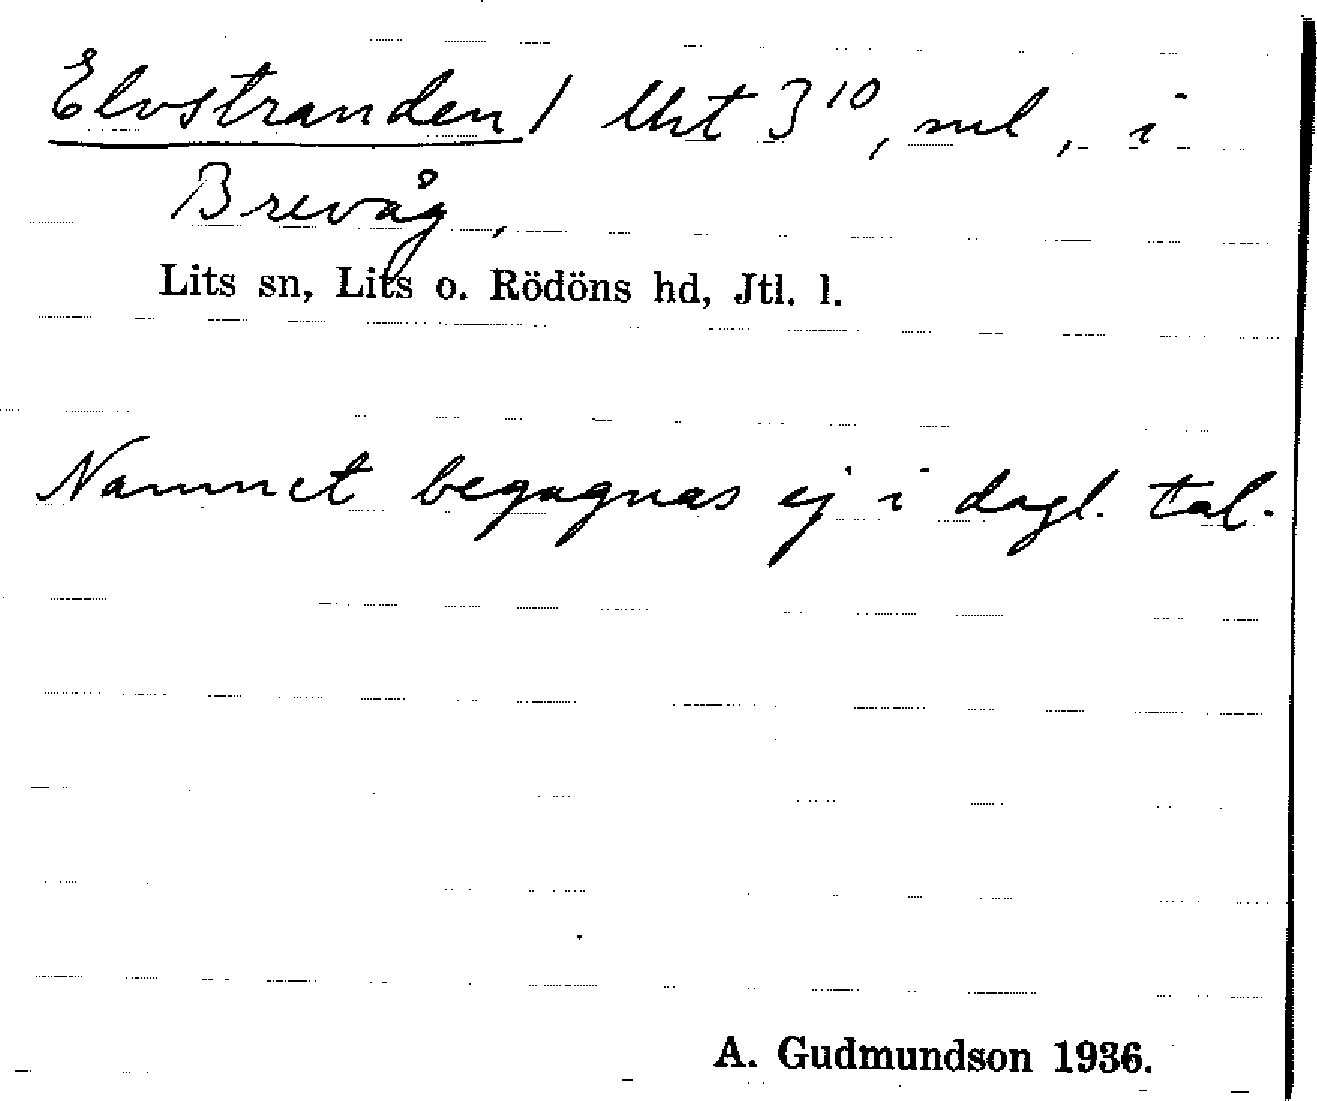 Elvstranden / lht 3¹⁰, nml, i
Brevåg,
Lits sn, Lits o. Rödöns hd, Jtl. l.
Namnet begagnas ej i dagl. tal.
A. Gudmundson 1936.